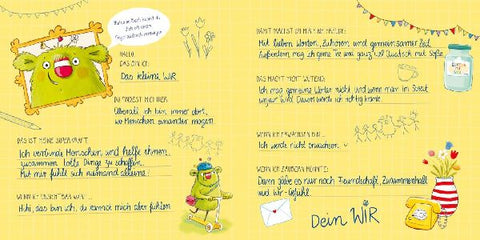 HALLO,
DAS BIN ICH:
Das kleine WIR
DU FINDEST MICH HIER:
Überall ich bin immer dort,
wo Menschen einander mögen
DAS IST MEINE SUPERKRAFT:
Ich verbinde Menschen und helfe ihnen,
zusammen tolle Dinge zu schaffen.
Mit mir fühlt sich niemand alleine!
Hihi, das bin ich, du kannst mich aber fühlen
DAMIT MACHST DU MIR EINE FREUDE:
Mit lieben Worten, Zuhören und gemeinsamer Zeit
Außerdem mag ich gerne Tee und ganz viel Quatsch mit Soße
DAS MACHT MICH WÜTEND:
Ich mag gemeine Wörter nicht und wenn man im Streit
unfair wird. Dann werde ich richtig krank.
WENN ICH ERWACHSEN BIN ...
Ich werde nicht erwachsen.
WENN ICH ZAUBERN KÖNNTE:
Dann gäbe es nur noch Freundschaft, Zusammenhalt
und Wir-Gefühl
Dein WIR